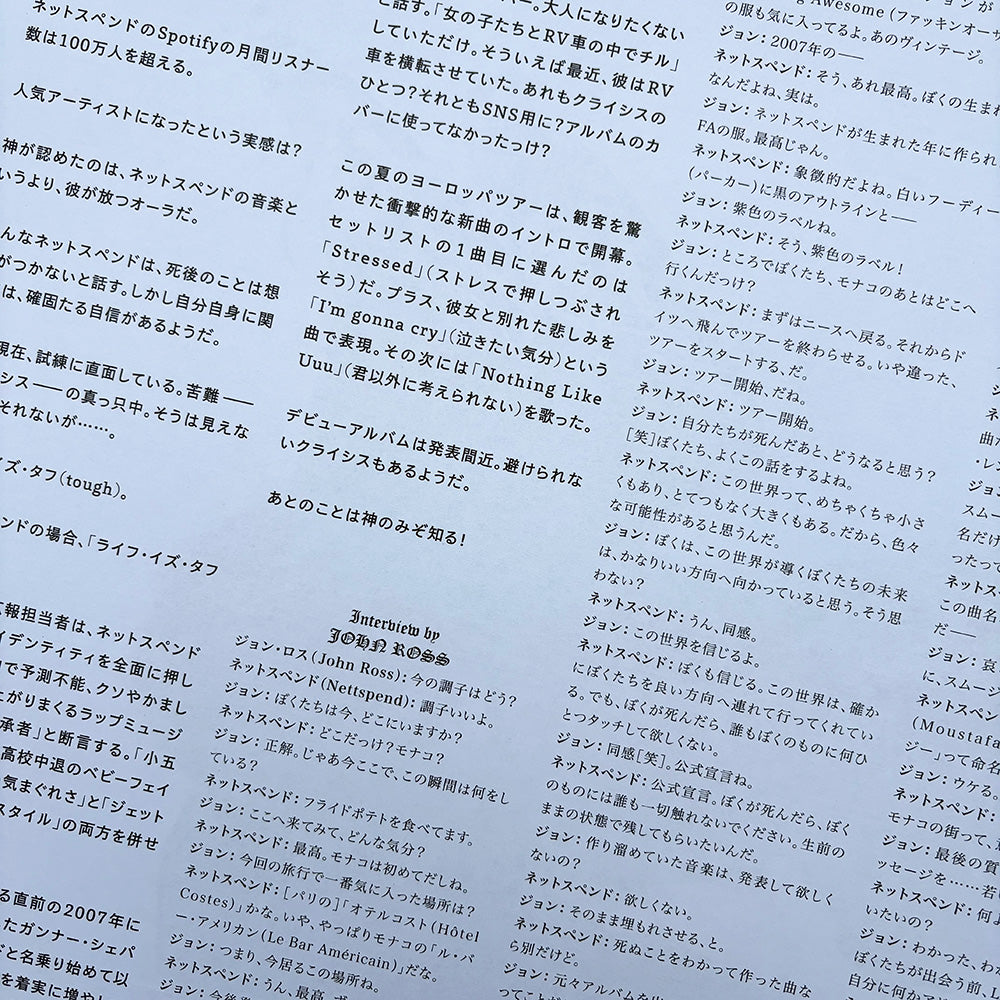 ネットスペンドのSpotifyの月間リスナー
数は100万人を超える。
人気アーティストになったという実感は?
神が認めたのは、ネットスペンドの音楽と
いうより、彼が放つオーラだ。
んなネットスペンドは、死後のことは想
がつかないと話す。しかし自分自身に関
は、確固たる自信があるようだ。
現在、試練に直面している。苦難——
シス——の真っ只中。そうは見えな
それないが……。
イズ・タフ(tough)。
ンドの場合、「ライフ・イズ・タフ
広報担当者は、ネットスペンド
イデンティティを全面に押し
で予測不能、クソやかまし
上がりまくるラップミュージ
承者」と断言する。「小五
高校中退のベビーフェイ
気まぐれさ」と「ジェット
スタイル」の両方を併せ
る直前の2007年に
たガンナー・シェパ
ドと名乗り始めて以
を着実に増やし
ー。大人になりたくない
と話す。「女の子たちとRV車の中でチル」
していただけ。そういえば最近、彼はRV
車を横転させていた。あれもクライシスの
ひとつ?それともSNS用に?アルバムのカ
バーに使ってなかったっけ?
この夏のヨーロッパツアーは、観客を驚
かせた衝撃的な新曲のイントロで開幕。
セットリストの1曲目に選んだのは
「Stressed」(ストレスで押しつぶされ
そう)だ。プラス、彼女と別れた悲しみを
「I'm gonna cry」(泣きたい気分)という
曲で表現。その次には「Nothing Like
Uuu」(君以外に考えられない)を歌った。
デビューアルバムは発表間近。避けられな
いクライシスもあるようだ。
あとのことは神のみぞ知る!
Interview by
JOHN ROSS
ジョン・ロス(John Ross):今の調子はどう?
ネットスペンド(Nettspend):調子いいよ。
ジョン:ぼくたちは今、どこにいますか?
ネットスペンド:どこだっけ?モナコ?
ジョン:正解。じゃあ今ここで、この瞬間は何をし
ている?
ネットスペンド:フライドポテトを食べてます。
ジョン:ここへ来てみて、どんな気分?
ネットスペンド:最高。モナコは初めてだしね。
ジョン:今回の旅行で一番気に入った場所は?
ネットスペンド:[パリの]「オテルコスト(Hôtel
Costes)」かな。いや、やっぱりモナコの「ル・バ
ー・アメリカン(Le Bar Américain)」だな。
ジョン:つまり、今居るこの場所ね。
ネットスペンド:うん、最高。
ジョン:今後
Awesome(ファッキンオーサ
の服も気に入ってるよ。あのヴィンテージ。
ジョン:2007年の——
ネットスペンド:そう、あれ最高。ぼくの生まれ
なんだよね、実は。
ジョン:ネットスペンドが生まれた年に作られ
FAの服。最高じゃん。
ネットスペンド:象徴的だよね。白いフーディー
(パーカー)に黒のアウトラインと——
ジョン:紫色のラベルね。
ネットスペンド:そう、紫色のラベル!
ジョン:ところでぼくたち、モナコのあとはどこへ
行くんだっけ?
ネットスペンド:まずはニースへ戻る。それからド
イツへ飛んでツアーを終わらせる。いや違った、
ツアーをスタートする、だ。
ジョン:ツアー開始、だね。
ネットスペンド:ツアー開始。
ジョン:自分たちが死んだあと、どうなると思う?
[笑]ぼくたち、よくこの話をするよね。
ネットスペンド:この世界って、めちゃくちゃ小さ
くもあり、とてつもなく大きくもある。だから、色々
な可能性があると思うんだ。
ジョン:ぼくは、この世界が導くぼくたちの未来
は、かなりいい方向へ向かっていると思う。そう思
わない?
ネットスペンド:うん、同感。
ジョン:この世界を信じるよ。
ネットスペンド:ぼくも信じる。この世界は、確か
にぼくたちを良い方向へ連れて行ってくれてい
る。でも、ぼくが死んだら、誰もぼくのものに何ひ
とつタッチして欲しくない。
ジョン:同感[笑]。公式宣言ね。
ネットスペンド:公式宣言。ぼくが死んだら、ぼく
のものには誰も一切触れないでください。生前の
ままの状態で残してもらいたいんだ。
ジョン:作り溜めていた音楽は、発表して欲しく
ないの?
ネットスペンド:欲しくない。
ジョン:そのまま埋もれさせる、と。
ネットスペンド:死ぬことをわかって作った曲な
ら別だけど。
ジョン:元々アルバムを出
ってことが
曲だ
・レン
ジョン
スムー
名だけ
ったって
ネットス
この曲名
だ——
ジョン:哀
に、スムージ
ネットスペン
(Moustafa
ジー」って命名
ジョン:ウケる。
ネットスペンド:
モナコの街って、
ジョン:最後の質
ッセージを……若
ネットスペンド:何
いたいの?
ジョン:わかった、わ
ぼくたちが出会う前、
自分に何か